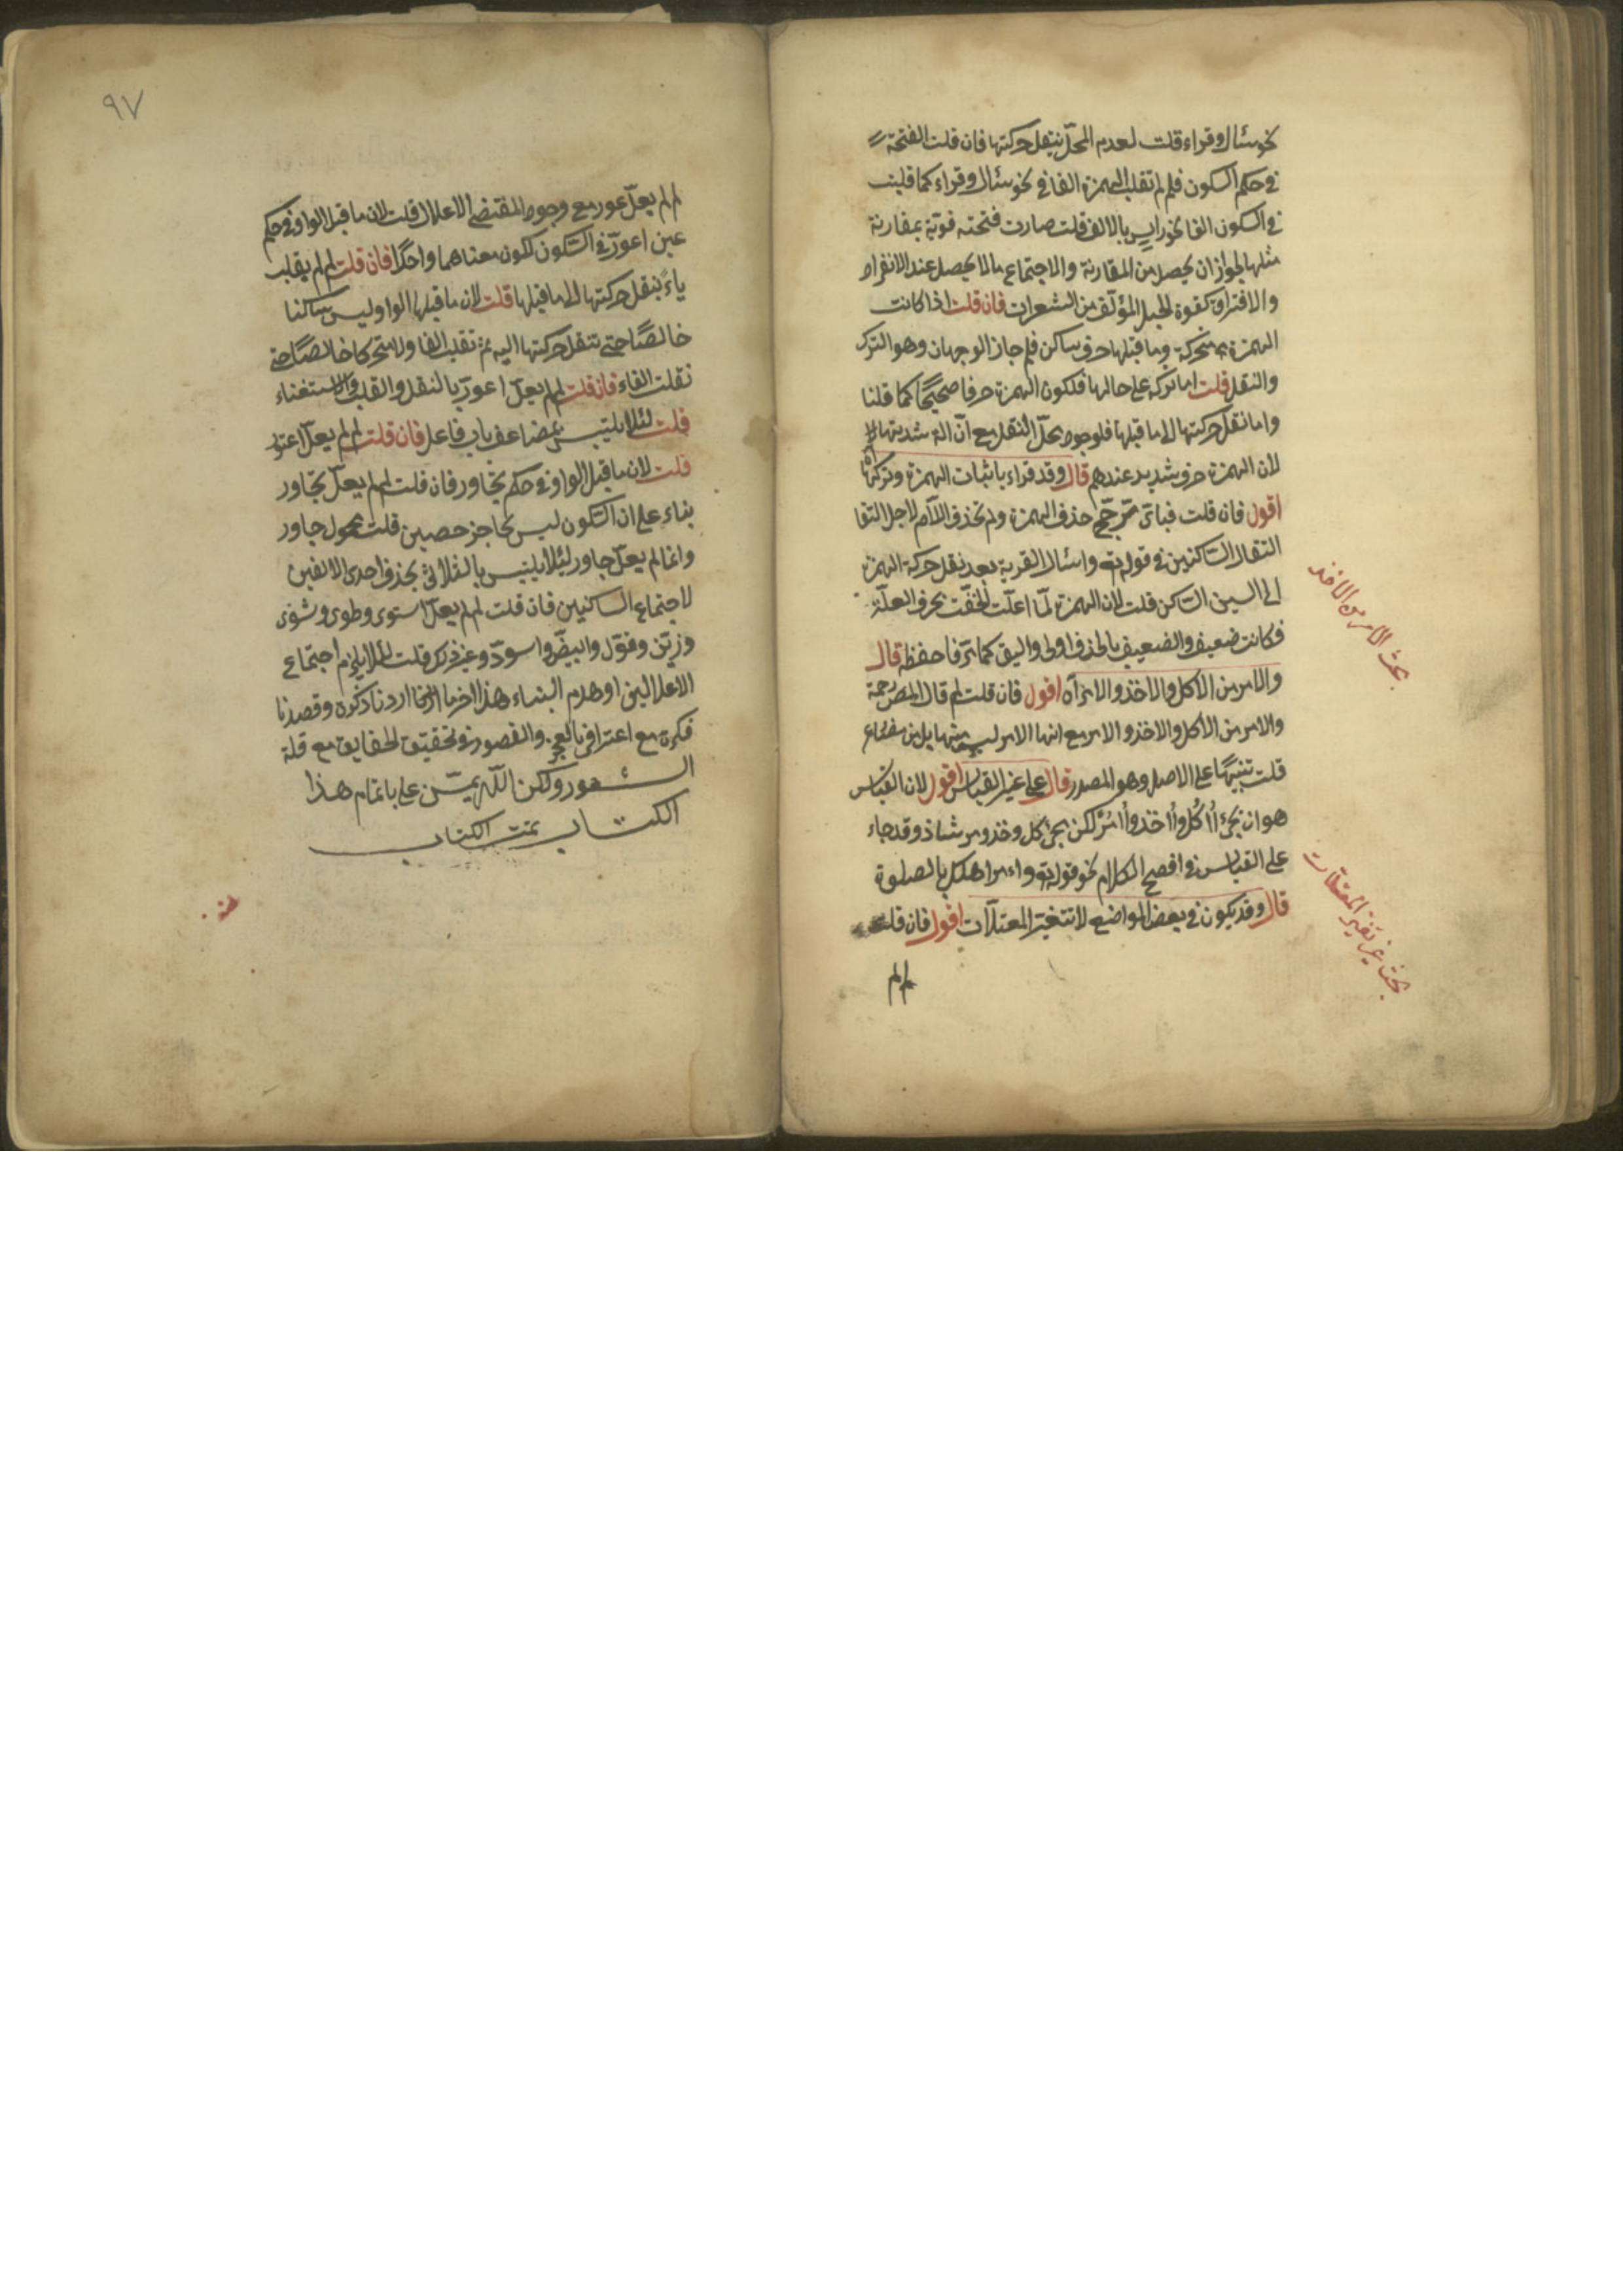 نحو سئال وقراء قلت لعدم المحل ينقل حركتها فان قلت الفتحة
في حكم السكون فلم لم تقلب الهمزة الفا في نحو سئال وقراء كما قلبت
في السكون الفا نحو راس بالالف قلت صارت فتحته قوية بمقارنة
مثلها لجواز ان يحصل من المقارنة والاجتماع مالا يحصل عند الانفراد
والافتراق كقوة الحبل المؤلف من الشعرات فان قلت اذا كانت
الهمزة متحركة وما قبلها حرف ساكن فلم جاز الوجهان وهو الترك
والنقل قلت اما تركه على حالها فلكون الهمزة حرفا صحيحا كما قلنا
واما نقل حركتها الى ما قبلها فلوجود محل النقل مع ان
لان الهمزة حرف شديد عندهم قال وقد قراء باثبات الهمزة وتركها
اقول فان قلت فباى مرجح حذف الهمزة ولم تحذف اللام لاجل التقا
التقاء الساكنين في قوله تع واسئال القرية بعد نقل حركة الهمزة
الى السين الساكن قلت لان الهمزة لما اعلت الحقت بحرف العلة
فكانت ضعيف والضعيف بالحذف اولى واليق كما تر فاحفظه قال
والامر من الاكل والاخذ والامر آه اقول فان قلت لم قال المص رحمة
والامر من الاكل والاخذ والامر مع انها الامر ليس منها بل من مضارع
قلت تنبيها على الاصل وهو المصدر قال على غير القياس اقول لان القياس
هو ان يجئ أاكل وأاخذ وأامر لكن يجئ كل وخذ ومر شاذ وقد جاء
على القياس في افصح الكلام نحو قوله تع واءمر اهلك بالصلوة
قال وقد يكون في بعض المواضع لا تتغير المعتلات اقول فان قلت
لم لم
بحث الامر من الاخذ
بحث غير تغير المعتلات
٩٧
لم لم يعل عور مع وجود المقتضى الاعلال قلت لان ما قبل الواو في حكم
عين اعور في السكون لكون معناهما واحدا فان قلت لم لم يقلب
ياء بنقل حركتها الى ما قبلها قلت لان ما قبلها الواو ليس ساكنا
خالصا حتى تنقل حركتها اليه ثم تقلب الفا ولا متحركا خالصا حتى
نقلت الفاء فان قلت لم لم يعل اعور بالنقل والقلب والاستغناء
قلت لئلا يلتبس بمضاعف باب فاعل فان قلت لم لم يعل اعتور
قلت لان ما قبل الواو في حكم تجاور فان قلت لم لم يعل تجاور
بناء على ان السكون ليس بحاجز حصين قلت جاور
وانما لم يعل جاور لئلا يلتبس بالثلاثى بحذف احدى الالفين
لاجتماع الساكنين فان قلت لم لم يعل استوى وطوى وشوى
وزين وقول وابيض واسود وغير ذلك قلت لئلا يلزم اجتماع
الاعلالين او هدم البناء هذا اخر ما اردنا ذكره وقصدنا
فكره مع اعترافى بالعجز والقصور في تحقيق الحقايق مع قلة
الشعور ولكن الله يمن على باتمام هذا
الكتاب تمت الكتاب